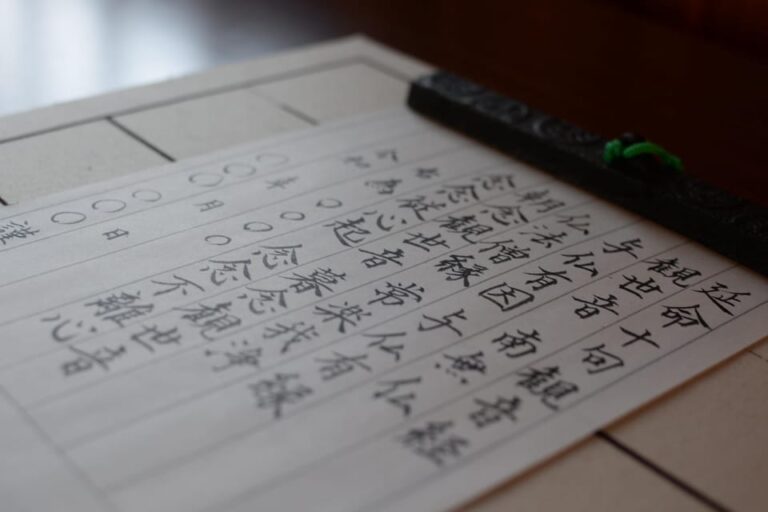 延命十句観音経
観世音南無仏
与仏有因与仏有縁
仏法僧縁常楽我浄
朝念観世音暮念観世音
念念從心起念念不離心
為〇〇〇〇
令和 年 月 日
〇〇〇〇〇〇 謹